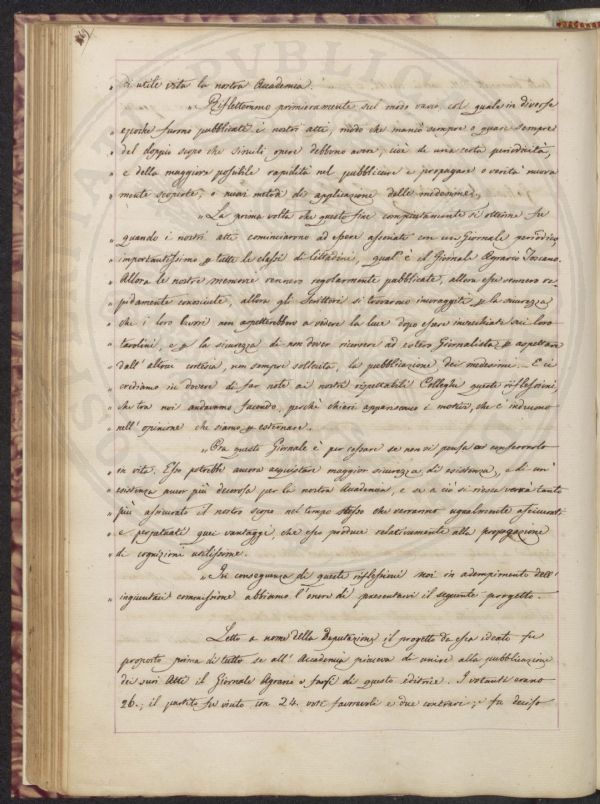 „ di utile vita la nostra Accademia.
„ Riflettemmo primieramente sul modo vario, col quale in diverse
„ epoche furono pubblicati i nostri atti, modo che mancò sempre o quasi sempre
„ del doppio scopo che simili opere debbono avere, cioè di una certa periodicità,
„ e della maggiore possibile rapidità nel pubblicare e propagare o verità nuova
„ mente scoperte, o nuovi metodi di applicazione delle medesime.
„ La prima volta che questo fine compiutamente si ottenne fu
„ quando i nostri atti cominciarono ad essere associati con un Giornale periodico
„ importantissimo p tutte le classi di Cittadini, qual'è il Giornale Agrario Toscano.
„ Allora le nostre memorie vennero regolarmente pubblicate, allora esse vennero ra„
„ pidamente conosciute, allora gli Scrittori si trovarono incoraggiti p la sicurezza
„ che i loro lavori non aspetterebbono a vedere la luce dopo essere invecchiati nei loro
„ tavolini, e p la sicurezza di non dover ricorrere ad estero Giornalista, p aspettare
„ dall'altrui cortesia, non sempre sollecita, la pubblicazione dei medesimi. E ci
„ crediamo in dovere di far note ai nostri rispettabili Colleghi queste riflessioni,
„ che tra noi andavamo facendo, perchè chiari appariscano i motivi, che c'indussero
„ nell'opinione che siamo p esternare.
„ Ora questo Giornale è per cessare se non vi pensa a conservarlo
„ in vita. Esso potrebbe ancora acquistare maggior sicurezza di esistenza, e di un'
„ esistenza ancor più decorosa per la nostra Accademia, e se a ciò si riesca verrà tanto
„ più assicurato il nostro scopo nel tempo stesso che verranno ugualmente assicurati
„ e perpetuati quei vantaggi, che esso produce relativamente alla propagazione
„ di cognizioni utilissime.
„ In conseguenza di queste riflessioni noi in adempimento dell'
„ ingiuntaci commissione abbiamo l'onore di presentarvi il seguente progetto.
Letto a nome della Deputazione il progetto da essa ideato fu
proposto prima di tutto se all'Accademia piaceva di unire alla pubblicazione
dei suoi Atti il Giornale Agrario e farsi di questo editrice. I votanti erano
26., il partito fu vinto con 24. voti favorevoli e due contrari; fu deciso